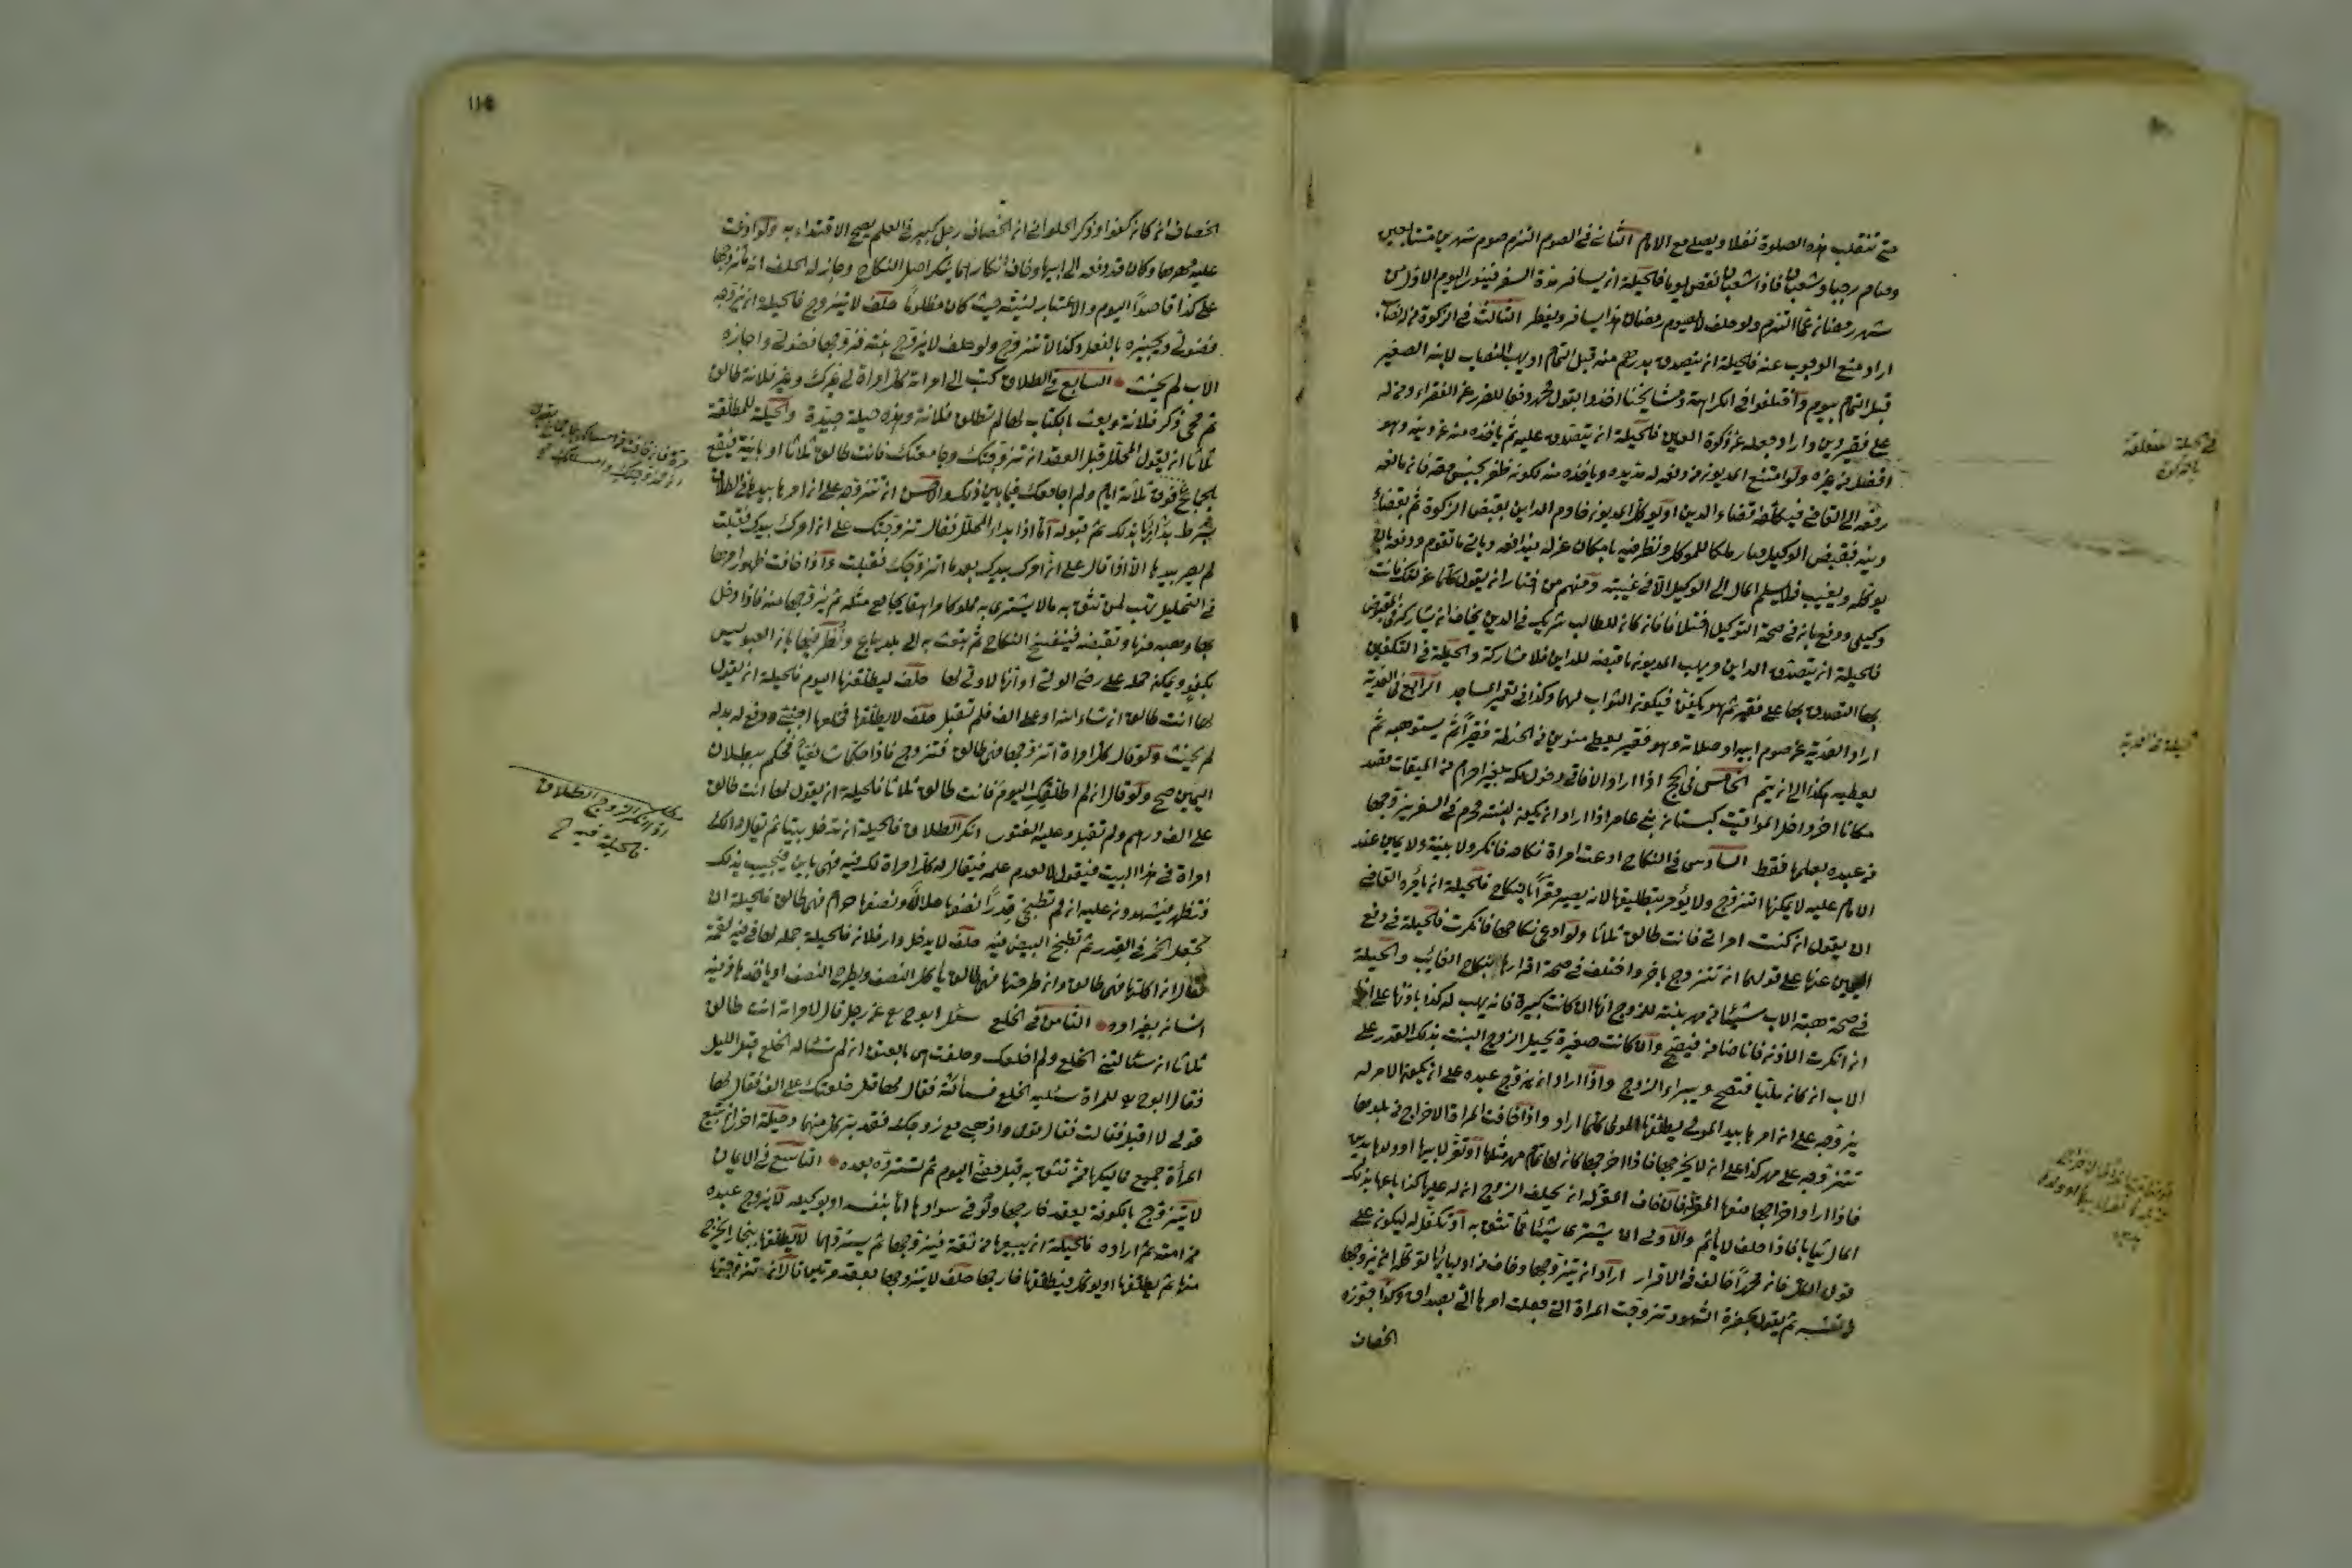 حتى تنقلب هذه الصلوة نفلا ويصلي مع الامام الثاني في الصوم التزم صوم شهرين متتابعين
وصام رجبا وشعبان فاذا شعبان نقص يوما فالحيلة ان يسافر مدة السفر فينوي اليوم الاول من
شهر رمضان عما التزم ولو حلف لا يصوم رمضان هذا يسافر ويفطر الثالث في الزكوة من له نصاب
اراد منع الوجوب عنه فالحيلة ان يتصدق بدرهم منه قبل التمام او يهب النصاب لابنه الصغير
قبل التمام بيوم واختلفوا في الكراهة ومشايخنا اخذوا بقول محمد دفعا للضرر عن الفقراء ومن له
على فقير دين واراد جعله عن زكوة العين فالحيلة ان يتصدق عليه ثم ياخذه منه عن دينه وهو
افضل من غيره ولو امتنع المديون من دفعه له مد يده وياخذه منه لكونه ظفر بجنس حقه فان مانعه
رفعه الى القاضي فيكلفه قضاء الدين او يوكل المديون خادم الداين بقبض الزكوة ثم بقضاء
دينه فبقبض الوكيل صار ملكا للموكل ونظر فيه بامكان عزله فيدافعه وياتي ما تقدم ودفعه بان
يوكله ويغيب فلا يسلم المال الى الوكيل الا في غيبته ومنهم من اختار ان يقول كلما عزلتك فانت
وكيلي ودفع بان في صحة التوكيل اختلافا فان كان للطالب شريك في الدين يخاف ان يشاركه في المقبوض
فالحيلة ان يتصدق الداين ويهب المديون ما قبضه للداين فلا مشاركة والحيلة في التكفين
بها التصدق بها على فقير ثم هو يكفن فيكون الثواب لهما وكذا في تعمير المساجد الرابع في الفدية
اراد الفدية عن صوم ابيه او صلاته وهو فقير يعطي منوين من الحنطة فقيرا ثم يستوهبه ثم
يعطيه هكذا الى ان يتم الخامس في الحج اذا اراد الافاقي دخول مكة بغير احرام من الميقات قصد
مكانا اخر داخل المواقيت كبستان بني عامر اذا اراد ان يكون لبنته محرم في السفر يزوجها
من عبده يعلمها فقط السادس في النكاح ادعت امراة نكاحه فانكر ولا بينة ولا يمين عند
الامام عليه لا يمكنها التزوج ولا يؤمر بتطليقها لانه يصير مقرا بالنكاح فالحيلة ان يامره القاضي
ان يقول ان كنت امراتي فانت طالق ثلاثا ولو ادعى نكاحها فانكرت فالحيلة في دفع
اليمين عنها على قولهما ان تتزوج باخر واختلف في صحة اقرارها بنكاح الغائب والحيلة
في صحة هبة الاب شيئا من مهر بنته للزوج انها ان كانت كبيرة فانه يهب له كذا باذنها على انها
ان انكرت الاذن فانا ضامن فيصح والا كانت صغيرة يحيل الزوج البنت بذلك القدر على
الاب ان كان مليا فتصح ويبراء الزوج واذا اراد ان يزوج عبده على ان يكون الامر له
يزوجه على ان امرها بيد المولى يطلقها المولى كلما اراد واذا خافت المراة الاخراج من بلدها
تتزوجه على مهر كذا على ان لا يخرجها فاذا اخرجها كان لها تمام مهر مثلها او تقر لابيها او ولدها بدين
فاذا اراد اخراجها منعها المقر له فان خاف المقر له ان يحلف الزوج ان له عليها كذا باعها بذلك
المال ثيابا فاذا حلف لا ياثم والاولى ان يشتري شيئا ممن تثق به او تكفل له ليكون على
قول الكل فان محمدا خالف في الاقرار اراد ان يتزوجها وخاف من اوليائها توكله ان يزوجها
من نفسه ثم يقول بحضرة الشهود تزوجت المراة التي جعلت امرها الي بصداق كذا جوزه
الخصاف
في حيلة المتعلقة
بالزكوة
حيلة في الفدية
١١٥
الخصاف ان كان كفوا وذكر الحلواني ان الخصاف رجل كبير في العلم يصح الاقتداء به ولو ادعت
عليه مهرها وكان قد دفعه الى ابيها وخاف انكارهما ينكر اصل النكاح وجاز له الحلف انه ما تزوجها
على كذا قاصدا اليوم والاعتبار لنيته حيث كان مظلوما حلف لا يتزوج فالحيلة ان يزوجه
فضولي ويجيزه بالفعل وكذا لا تتزوج ولو حلف لا يزوج بنته فزوجها فضولي واجازه
الاب لم يحنث السابع في الطلاق كتب الى امراته كل امراة لي غيرك وغير فلانة طالق
ثم محى ذكر فلانة وبعث بالكتاب لها لم تطلق فلانة وهذه حيلة جيدة والحيلة للمطلقة
ثلاثا ان يقول المحلل قبل العقد ان تزوجتك وجامعتك فانت طالق ثلاثا او باينة فيقع
بالجماع فوق ثلاثة ايام ولم اجامعك فيما بين ذلك والاحسن ان تتزوجه على ان امرها بيدها في الطلاق
بشرط بداءتها بذلك ثم قبوله اما اذا بداء المحلل فقال تزوجتك على ان امرك بيدك فقبلت
لم يصر بيدها الا اذا قال على ان امرك بيدك بعد ما اتزوجك فقبلت واذا خافت ظهور امرها
في التحليل تهب لمن تثق به مالا يشتري به مملوكا مراهقا يجامع مثله ثم يزوجها منه فاذا دخل
بها وهبه منها وتقبضه فينفسخ النكاح ثم تبعث به الى بلد يباع ونظر فيها بان العبد ليس
بكفو ويمكن حمله على رضى الولي او انها لا ولي لها حلف ليطلقنها اليوم فالحيلة ان يقول
لها انت طالق ان شاء الله او على الف فلم تقبل حلف لا يطلقها فخلعها اجنبي ودفع له بدله
لم يحنث ولو قال كل امراة اتزوجها فهي طالق فتزوج فاذا حكمت شفعيا فحكم ببطلان
اليمين صح ولو قال ان لم اطلقك اليوم فانت طالق ثلاثا فالحيلة ان يقول لها انت طالق
على الف درهم ولم تقبل وعليه الفتوى انكر الطلاق فالحيلة ان تدخل بيتا ثم يقال له الك
امراة في هذا البيت فيقول لا لعدم علمه فيقال له كل امراة لك فيه فهي باين فيجيب بذلك
فتظهر فيشهدون عليه ان لم تطبخي قدرا نصفها حلال ونصفها حرام فهي طالق فالحيلة ان
تجعل الخمر في القدر ثم تطبخ البيض فيه حلف لا يدخل دار فلان فالحيلة حمله لها في فيه لقمة
فقال ان اكلتها فهي طالق وان طرحتها فهي طالق ياكل النصف ويطرح النصف او ياخذها من فيه
انسان بغير امره الثامن في الخلع سئل ابو ح مع عن رجل قال لامراته انت طالق
ثلاثا ان سئالتني الخلع ولم اخلعك وحلفت هي بالعتق ان لم تسئاله الخلع قبل الليل
فقال ابو ح مع للمراة سليه الخلع فسئالته فقال لها قل خلعتك على الف فقال لها
قولي لا اقبل فقالت فقال قومي واذهبي مع زوجك فقد بر كل منهما وحيلة اخرى ان تبيع
المراة جميع مماليكها ممن تثق به قبل مضي اليوم ثم تسترده بعده التاسع في الايمان
لا يتزوج بالكوفة يعقد خارجها ولو في سوادها اما بنفسه او بوكيله لا يزوج عبده
من امته ثم اراده فالحيلة ان يبيعها من ثقة فيزوجها ثم يستردهما لا يطلقها ببخارا يخرج
منها ثم يطلقها او يوكل فيطلقها خارجها حلف لا يتزوجها بعقد مرتين قال ان تزوجتها
مطلب
اذا انكر الزوج الطلاق
فالحيلة فيه